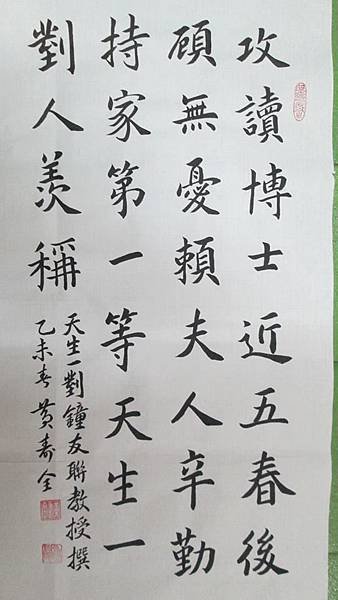 攻讀博士近五春後
顧無憂賴夫人辛勤
持家第一等天生一
對人羨稱
天生一對鐘友聯教授撰
乙未春 黃壽全